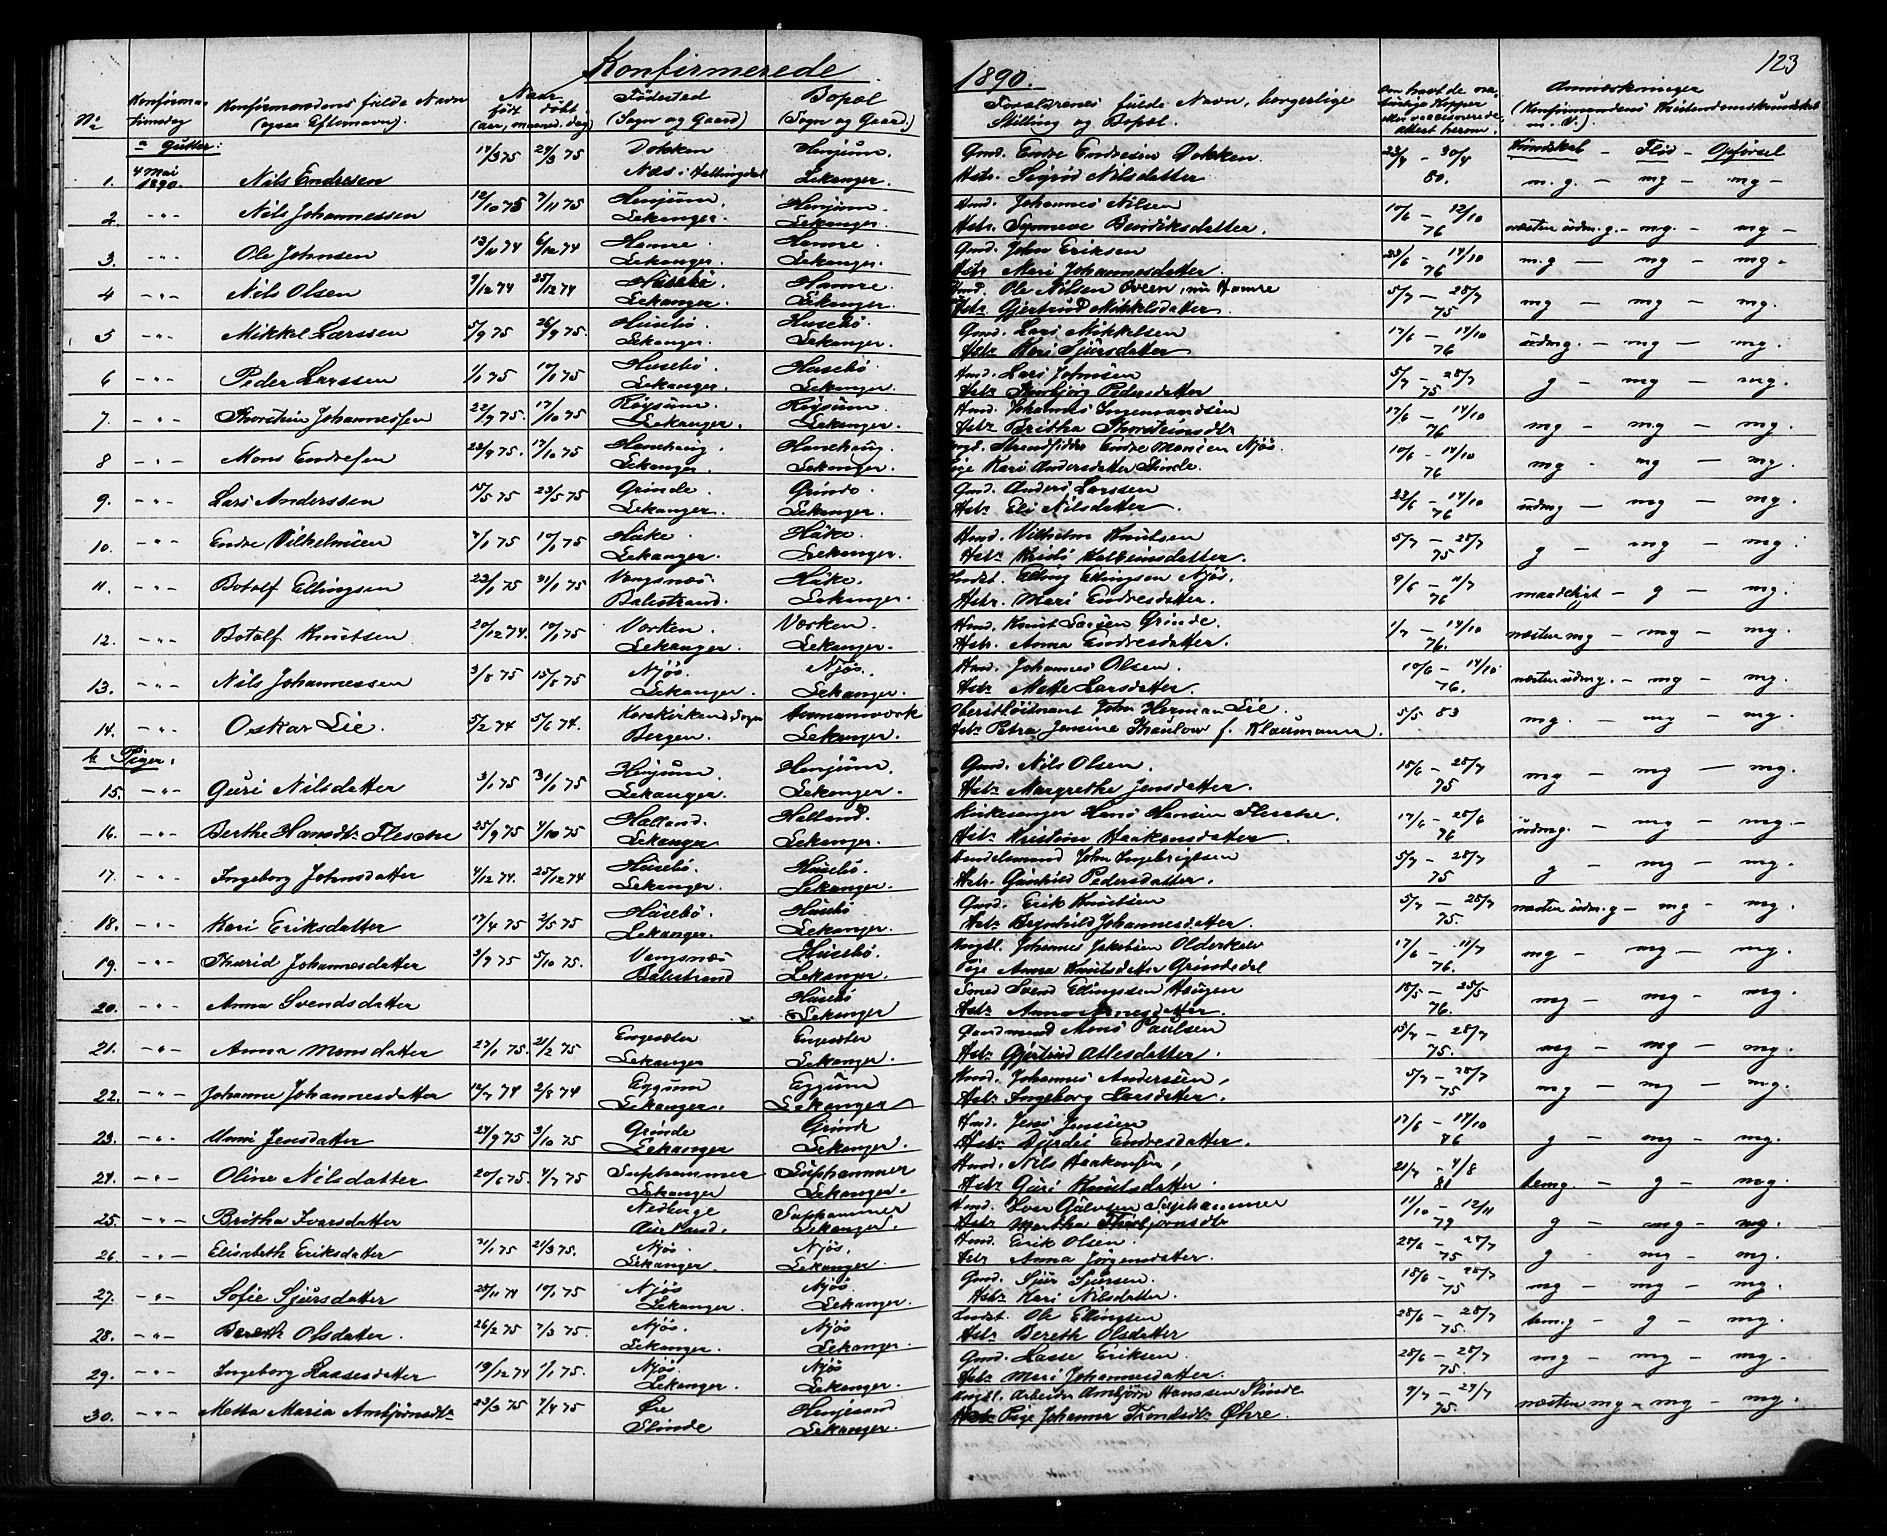 Konfirmerede
1890.
123
No
Konfirma-
tionsdag
Konfirmandens fulde Navn
(ogsaa Efternavn).
Naar
født døbt
(aar, maaned, dag)
Fødested
(Sogn og Gaard)
Bopæl
(Sogn og Gaard)
Forældrenes fulde Navn, borgerlige
Stilling og Bopæl.
Om havt de na-
turlige Kopper
eller vaccinerede,
attest herom.
Anmærkninger
(Konfirmandens Kristendomskundskab
m. v.)
a Gutter:
Kundskab - Flid - Opførsel
1. 4 Mai 1890. Nils Endresen 14/3 75 29/3 75 Dokken Næs i Hallingdal Henjum. Lekanger. Gmd. Endre Endresen Dokken Hstr. Sigrid Nilsdatter 23/4 - 30/4 80. m.g. - mg - mg -
2. -"- Nils Johannessen 12/10 75 7/11 75 Henjum. Lekanger. Henjum. Lekanger. Hmd. Johannes Nilsen Hstr. Synneve Bendiksdatter. 10/6 - 12/10 76 næsten udm. g. - mg. - mg -
3. -"- Ole Johnsen 13/11 74 6/12 74 Hamre. Lekanger. Hamre. Lekanger. Gmd. John Eriksen Hstr. Mari Johannesdatter. 23/6 - 14/10 76 m.g - mg - mg -
4 -"- Nils Olsen 9/12 74 25/12 74 Husebø Lekanger. Hamre. Lekanger. Hmd. Ole Nilsen Oveen, nu Hamre Hstr. Gjertrud Mikkelsdatter. 5/7 - 25/7 75 mg - mg - mg.
5 -"- Mikkel Larssen 5/9 75 26/9 75. Husebø. Lekanger. Husebø. Lekanger. Gmd. Lars Mikkelsen Hstr. Kari Sjursdatter 17/6 - 14/10 76 udm.g. - mg - mg.
6 -"- Peder Larssen 1/1 75 10/1 75 Husebø Lekanger. Husebø Lekanger. Hmd. Lars Johnsen Hstr. Pedersdatter 5/7 - 25/7 75 g - mg - mg.
7. -"- Thorstein Johannessen 22/9 75. 17/10 75 Røysum. Lekanger. Røysum. Lekanger. Hmd. Johannes Ingemundsen Hstr. Britha Thorsteinsdtr 17/6 - 14/10 76 mg - mg - mg.
8 -"- Mons Endresen 23/9 75. 17/10 75 Hanehaug. Lekanger. Hanehaug. Lekanger. Strandsidder Endre Monsen Njøs. Pige Kari Andersdatter Slinde. 10/6 - 14/10 76 mg - mg - mg.
9. -"- Lars Anderssen 15/5 75 23/5 75 Grinde. Lekanger. Grinde. Lekanger. Gmd. Anders Larssen Hstr. Eli Nilsdatter. 22/6 - 14/10 76 udmg - mg - mg.
10. -"- Endre Vilhelmsen 2/1 75 10/1 75 Haake. Lekanger. Haake. Lekanger. Hmd. Vilhelm Knutsen Hstr. Kristi datter. 5/7 - 25/7 75 g - mg - mg.
11. -"- Botolf Ellingsen 23/1 75 31/1 75 Vangsnæs. Balestrand. Haake. Lekanger. Indst. Elling Ellingsen Njøs. Hstr. Mari Endresdatter. 9/6 - 11/7 76 maadeligt - g - mg.
12. -"- Botolf Knutsen 20/12 74. 10/1 75 Værken. Lekanger. Værken. Lekanger. Hmd. Knut Larsen Grinde. Hstr. Anna Endresdatter. 1/7 - 14/10 76. næsten mg - mg - mg.
13. -"- Nils Johannessen 3/8 75 15/8 75 Njøs. Lekanger. Njøs. Lekanger. Hmd. Johannes Olsen. Hstr. Mette Larsdatter. 10/6 - 14/10 76. næsten udmg. - mg - mg.
14. -"- Oskar Lie. 5/2 74 5/6 74. Korskirkens Sogn Bergen. Amtmansværk Lekanger. Oberstløitnant John Herman Lie. Hstr. Petra Jensine Thaulow f. Klauwmann. 5/5 83 mg. - mg - mg.
b Piger:
15. -"- Guri Nilsdatter 3/1 75 31/1 75 Henjum. Lekanger. Henjum. Lekanger. Gmd. Nils Olsen. Hstr. Margrethe Jensdatter. 15/6 - 25/7 75 mg - mg - mg.
16. -"- Berthe Hansdtr. Flesche 25/9 75 4/10 75 Halland. Lekanger Halland. Lekanger. Kirkesanger Hans Hansen Flesche. Hstr. Kristine Haakensdatter. 17/6 - 25/6 76 udmg. - mg - mg. -
17. -"- Ingeborg Johnsdatter 4/12 74. 25/12 74 Husebø. Lekanger. Husebø. Lekanger. Handelsmand John Ingebrigtsen Hstr. Gunhild Pedersdatter. 5/7 - 25/7 75 g - mg - mg.
18. -"- Kari Eriksdatter 17/4 75 2/5 75 Husebø. Lekanger. Husebø Lekanger. Gmd. Erik Knutsen Hstr. Brynhild Johannesdatter. 5/7 - 25/7 75. næsten udm.g - mg - mg.
19. -"- Thurid Johannesdatter 3/9 75 5/10 75. Vangsnæs Balestrand Husebø. Lekanger. Ungkl. Johannes Jakobsen Pige Anna Knutsdatter Grindedal 17/6 - 11/7 76. mg - mg - mg.
20. -"- Anna Svendsdatter Husebø Lekanger Smed Svend Ellingsen Haugen Hstr. Anna datter. 15/5 - 25/5 76. mg - mg - mg.
21. -"- Anna Monsdatter 27/1 75. 21/2 75 Engesæter Lekanger Engesæter Lekanger. Gaardmand Mons Paulsen Hstr. Gjertrud Atlesdatter. 15/7 - 25/7 75. mg - mg - mg.
22. -"- Johanne Johannesdatter 12/7 74 2/8 74 Eggum Lekanger. Eggum Lekanger Hmd. Johannes Anderssen, Hstr. Ingeborg Larsdatter. 5/7 - 25/7 75 mg - mg - mg.
23. -"- Unni Jensdatter 24/9 75 3/10 75 Grinde Lekanger Grinde Lekanger. Hmd. Jens Jenssen Hstr. Endresdatter. 17/6 - 14/10 76 g - mg - mg.
24. -"- Oline Nilsdatter 20/6 75. 4/7 75 Suphammer Lekanger Suphammer Lekanger. Hmd. Nils Haakonsen, Hstr. Guri Knutsdatter. 21/7 - 4/8 81 tem.g. - g - mg.
25. -"- Britha Ivarsdatter Aurland. Suphammer Lekanger. Hmd. Iver Suphammer Hstr. Martha Thorbjørnsdtr 11/10 - 12/11 79 g - mg - mg.
26. -"- Elisabeth Eriksdatter 21/1 75 21/3 75. Njøs. Lekanger. Njøs. Lekanger. Hmd. Erik Olsen. Hstr. Anna Jørgensdatter. 25/6 - 25/7 75 g - mg - mg.
27. -"- Sofie Sjursdatter 25/11 74 10/1 75 Njøs Lekanger. Njøs Lekanger. Gmd. Sjur Sjursen. Hstr. Kari Nilsdatter. 15/6 - 25/7 75 mg - mg - mg.
28. -"- Bereth Olsdatter. 26/2 75 7/3 75. Njøs. Lekanger. Njøs Lekanger. Indst. Ole Ellingsen Hstr. Bereth Olsdatter 25/6 - 25/7 75. tem.g - g - mg.
29. -"- Ingeborg Lassesdatter 19/12 74 1/1 75. Njøs. Lekanger. Njøs Lekanger. Gmd. Lasse Eriksen. Hstr. Mari Johannesdatter. 25/6 - 25/7 75. mg - mg - mg.
30. -"- Metta Maria Arnbjørnsdtr 23/3 75 7/4 75 Øre Slinde Henjesand Lekanger. Ungkl. Arbeider Arnbjørn Hanssen Slinde Pige Johanna Trondsdtr. Øhre. 9/7 - 24/7 75. næsten mg - mg - mg.